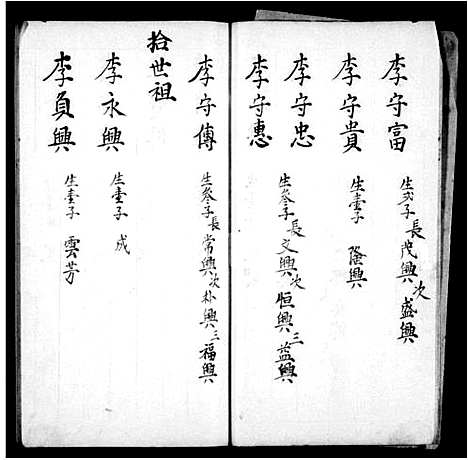 李守富 生弍子 長茂興 次盛興
李守貴 生壹子 隆興
李守忠
李守惠 生叁子 長文興 次恒興 三益興
李守傳 生叁子 長常興 次朴興 三福興
拾世祖
李永興 生壹子 成
李負興 生壹子 雲芳